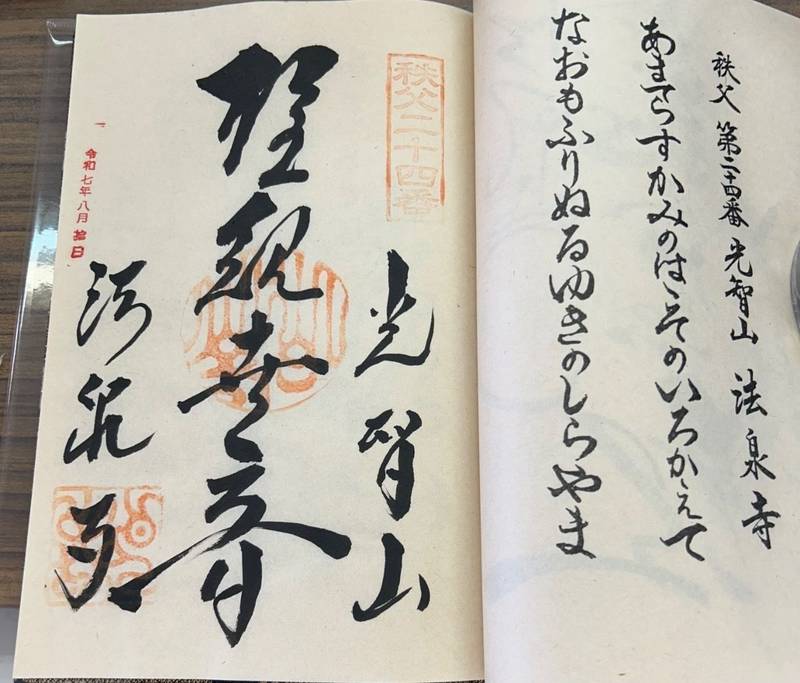 秩父 第二十四番 光智山 法泉寺
あまてらすかみのはゝそのいろかえて
なおもふりぬるゆきのしらやま
秩父二十四番
光智山
聖観世音
法泉寺
令和七年八月拾日